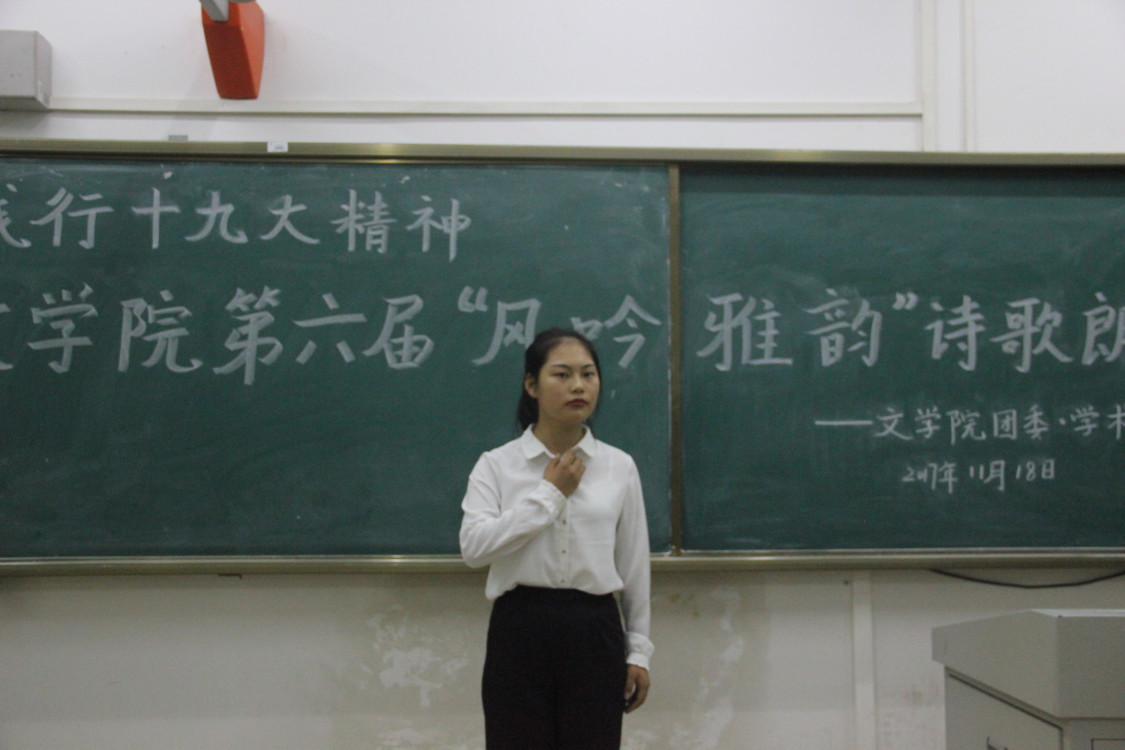 践行十九大精神
文学院第六届“风吟雅韵”诗歌朗
——文学院团委·学术
2017年11月18日